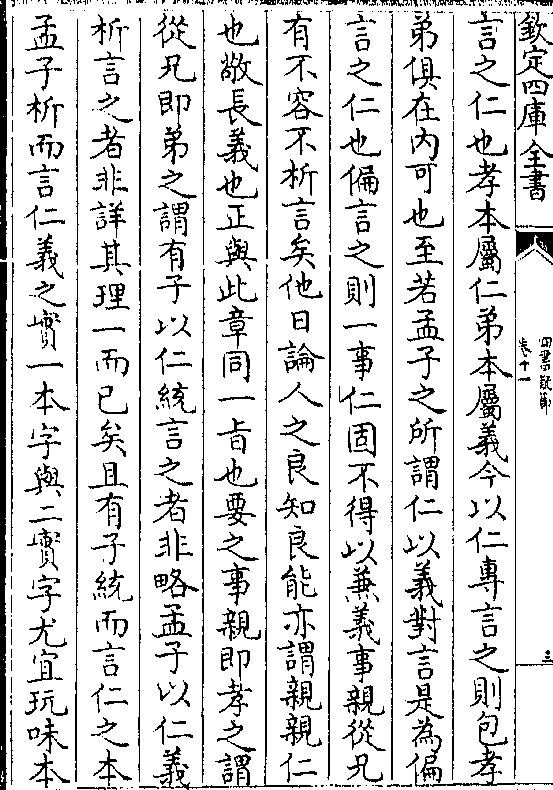 欽定四庫全書
四書疑節
卷十一
三
言之仁也孝本屬仁弟本屬義今以仁專言之則包孝
弟俱在內可也至若孟子之所謂仁以義對言是為偏
言之仁也偏言之則一事仁固不得以兼義事親從兄
有不容不析言矣他日論人之良知良能亦謂親親仁
也敬長義也正與此章同一旨也要之事親即孝之謂
從兄即弟之謂有子以仁統言之者非略孟子以仁義
析言之者非詳其理一而已矣且有子統而言仁之本
孟子析而言仁義之實一本字與二實字尤宜玩味本